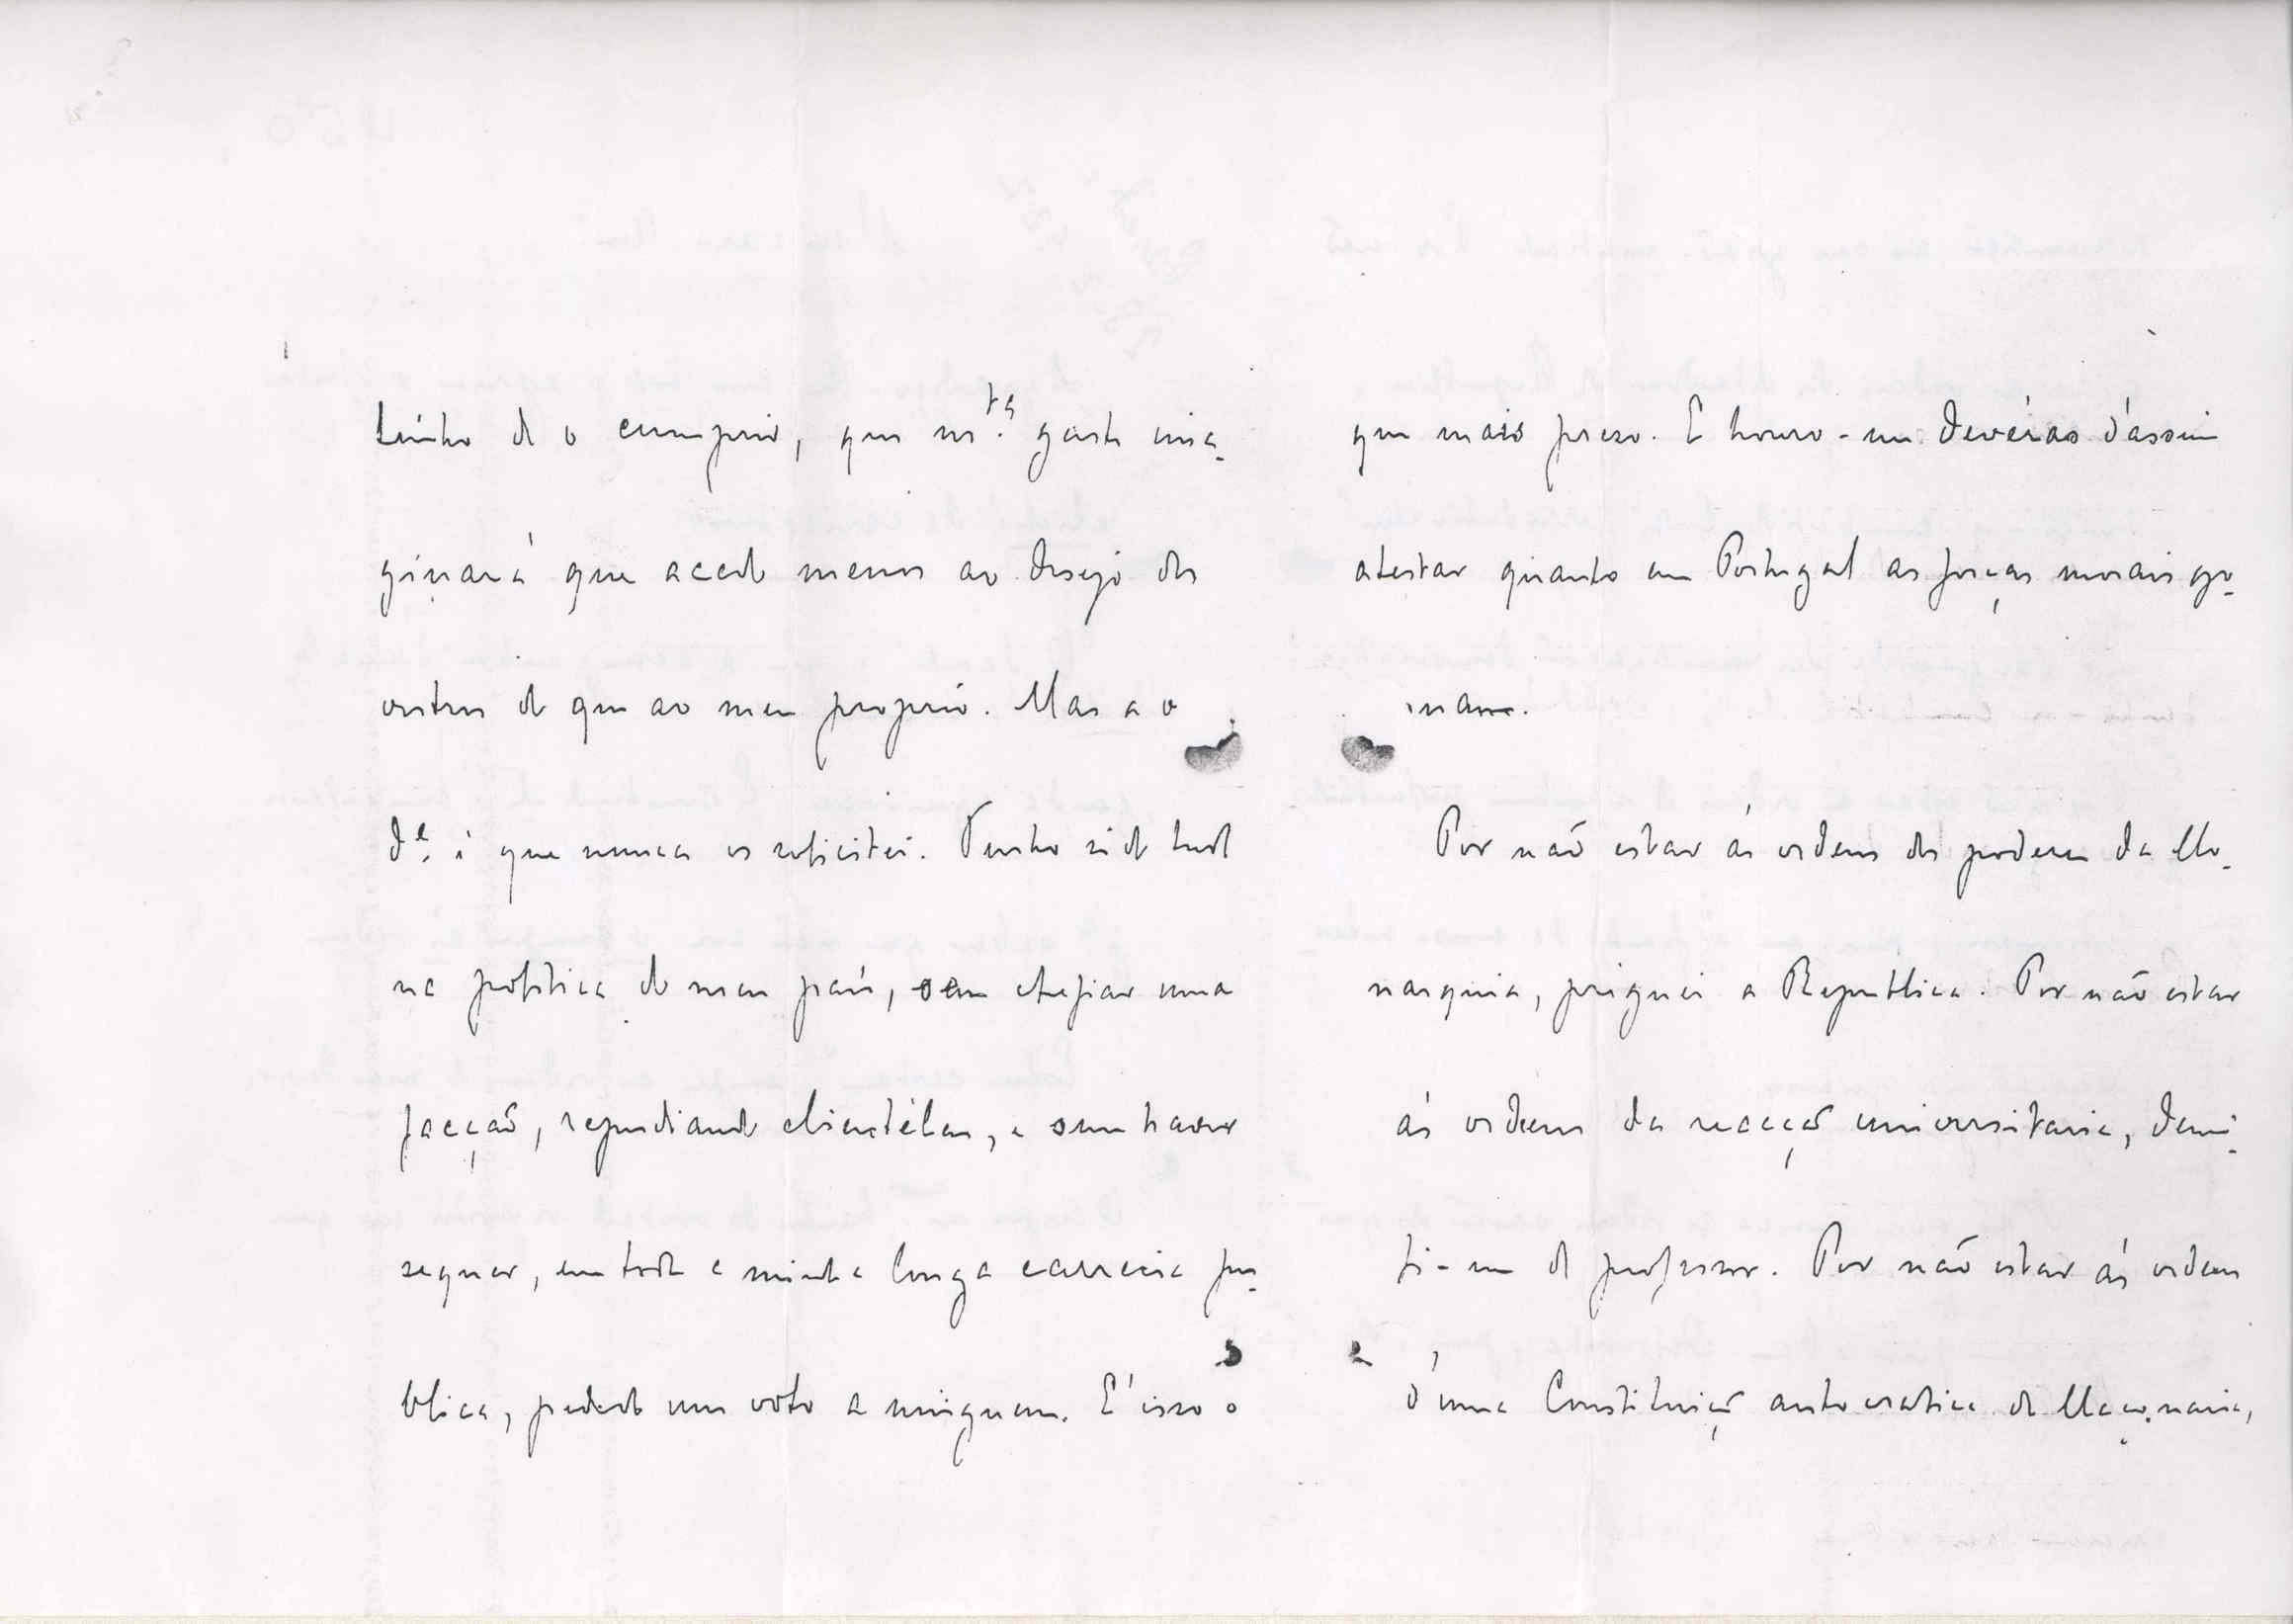 tenho de o cumprir, que mta. gente ima-
ginará que acedo menos ao desejo dos
outros do que ao meu proprio. Mas a v
de. é que nunca os solicitei. Tenho sido tudo
na politica do meu país, sem chefiar uma
facção, repudiando clientélas, e sem haver
sequer, em toda a minha longa carreira pu-
blica, pedido um voto a ninguem. E' isso o
que mais prezo. E honro-me devéras d'assim
atestar quanto em Portugal as forças morais go-
Por não estar ás ordens dos poderes da Mo-
narquia, préguei a Republica. Por não estar
ás ordens da reacção universitaria, demi-
ti-me de professor. Por não estar ás ordens
d'uma Constituição autocratica da Maçonaria,